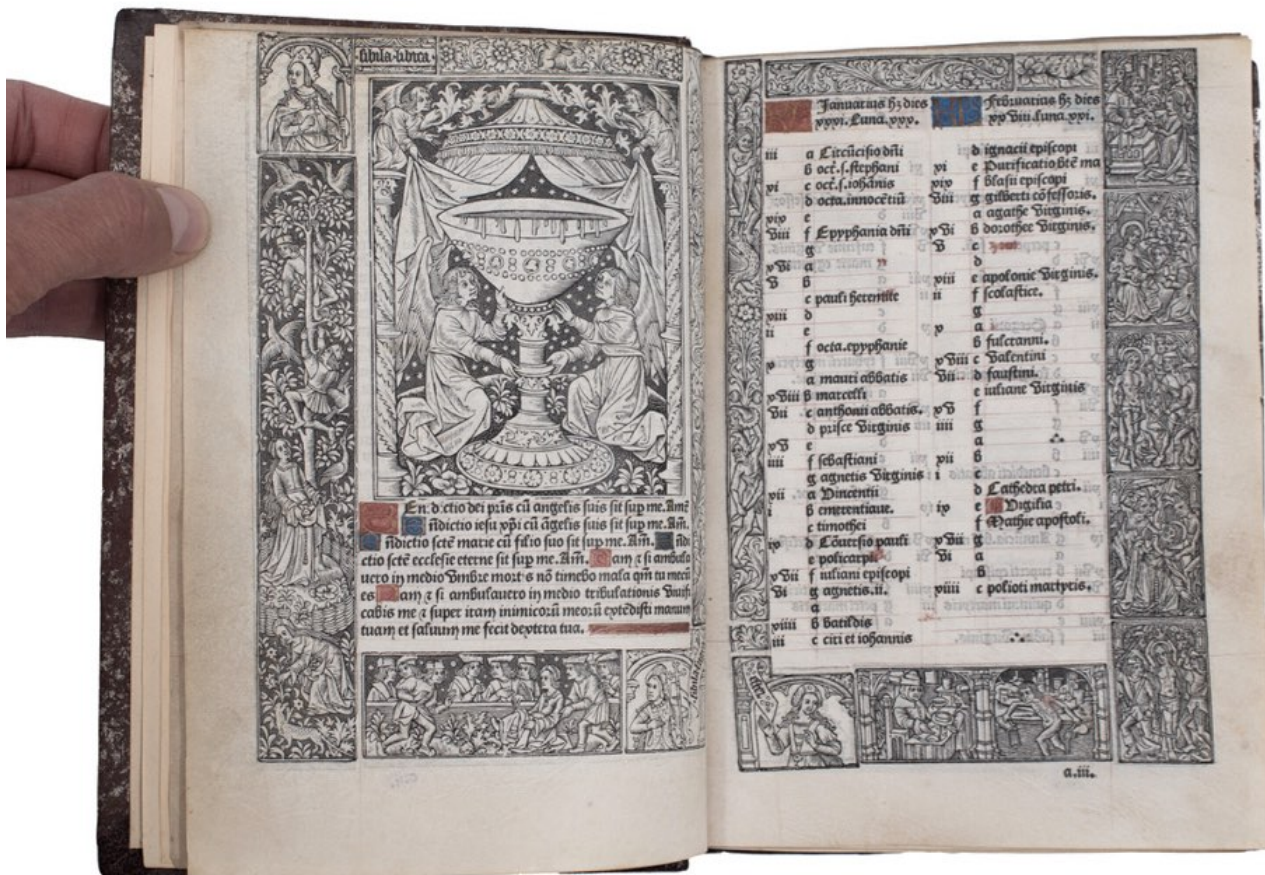 sibila libica
En dictio dei p̃ris cũ angelis suis sit sup me. Amẽ
ñdictio iesu xp̃i cũ ãgelis suis sit sup me. Am̃.
ñdictio sctẽ marie cũ filio suo sit sup me. Am̃. ñdi
ctio sctẽ ecclesie eterne sit sup me. Am̃. am ⁊ si ambula
uero in medio vmbre mortis nõ timebo mala qm̃ tu mecũ
es am ⁊ si ambulauero in medio tribulationis viuifi
cabis me ⁊ super iram inimicorũ meorũ extẽdisti manum
tuam et saluum me fecit dextera tua.
Januarius hz dies
xxxi. Luna. xxx.
iii a Circũcisio dñi
b oct̃. s. stephani
xi c oct̃. s. iohãnis
d octa. innocẽtiũ
xix e
viii f Epyphania dñi
g
xvi a
v b
c pauli heremite
xiii d
ii e
f octa. epyphanie
x g
a mauri abbatis
xviii b marcelli
vii c anthonii abbatis.
d prisce virginis
xv e
iiii f sebastiani
g agnetis virginis
xii a vincentii
i b emerentiane.
c timothei
ix d Cõuersio pauli
e policarpi
xvii f iuliani episcopi
vi g agnetis. ii.
a
xiiii b batildis
iii c ciri et iohannis
Februarius hz dies
xxviii. luna. xxi.
d ignacii episcopi
xi e Purificatio btẽ ma
xix f blasii episcopi
viii g gilberti cõfessoris.
a agathe virginis.
xvi b dorothee virginis.
v c
d
xiii e apolonie virginis.
ii f scolastice.
g
x a
b fulcranni.
xviii c valentini
vii d faustini.
e iuliane virginis
xv f
iiii g
a
xii b
i c
d Cathedra petri.
ix e Vigilia
f Mathie apostoli.
xvii g
vi a
b
xiiii c polioti martyris.
a.iii.